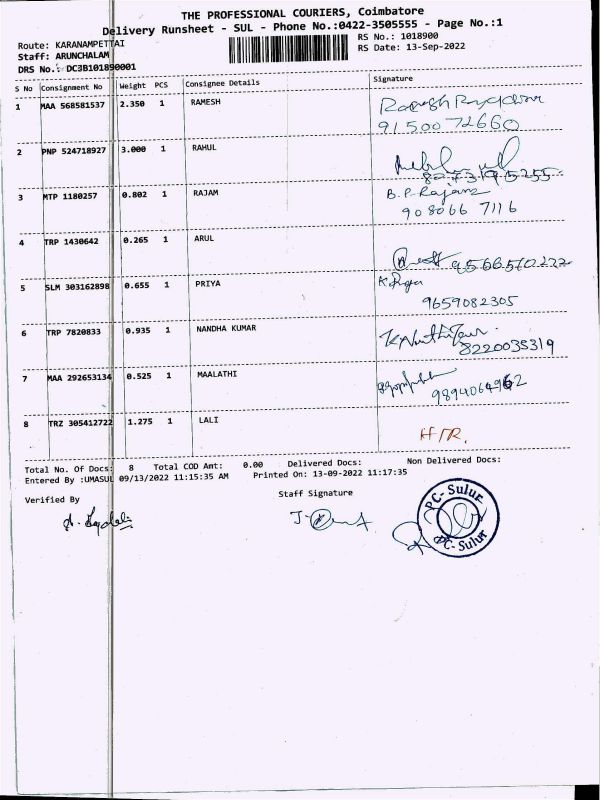 THE PROFESSIONAL COURIERS, Coimbatore
Delivery Runsheet - SUL - Phone No.:0422-3505555 - Page No.:1
Route: KARANAMPETTAI
RS No.: 1018900
Staff: ARUNCHALAM
RS Date: 13-Sep-2022
DRS No.: DC3B101890001
S No Consignment No Weight PCS Consignee Details Signature
1 MAA 568581537 2.350 1 RAMESH
91500 72660
2 PNP 524718927 3.000 1 RAHUL
3 MTP 1180257 0.802 1 RAJAM B.P. Rajam
908066 7116
4 TRP 1430642 0.265 1 ARUL
9566510222
5 SLM 303162898 0.655 1 PRIYA K. Priya
9659082305
6 TRP 7820833 0.935 1 NANDHA KUMAR
8220035319
7 MAA 292653134 0.525 1 MAALATHI
8 TRZ 305412722 1.275 1 LALI
Total No. Of Docs: 8 Total COD Amt: 0.00 Delivered Docs: Non Delivered Docs:
Entered By :UMASUL 09/13/2022 11:15:35 AM Printed On: 13-09-2022 11:17:35
Verified By Staff Signature
PC-Sulur
PC-Sulur